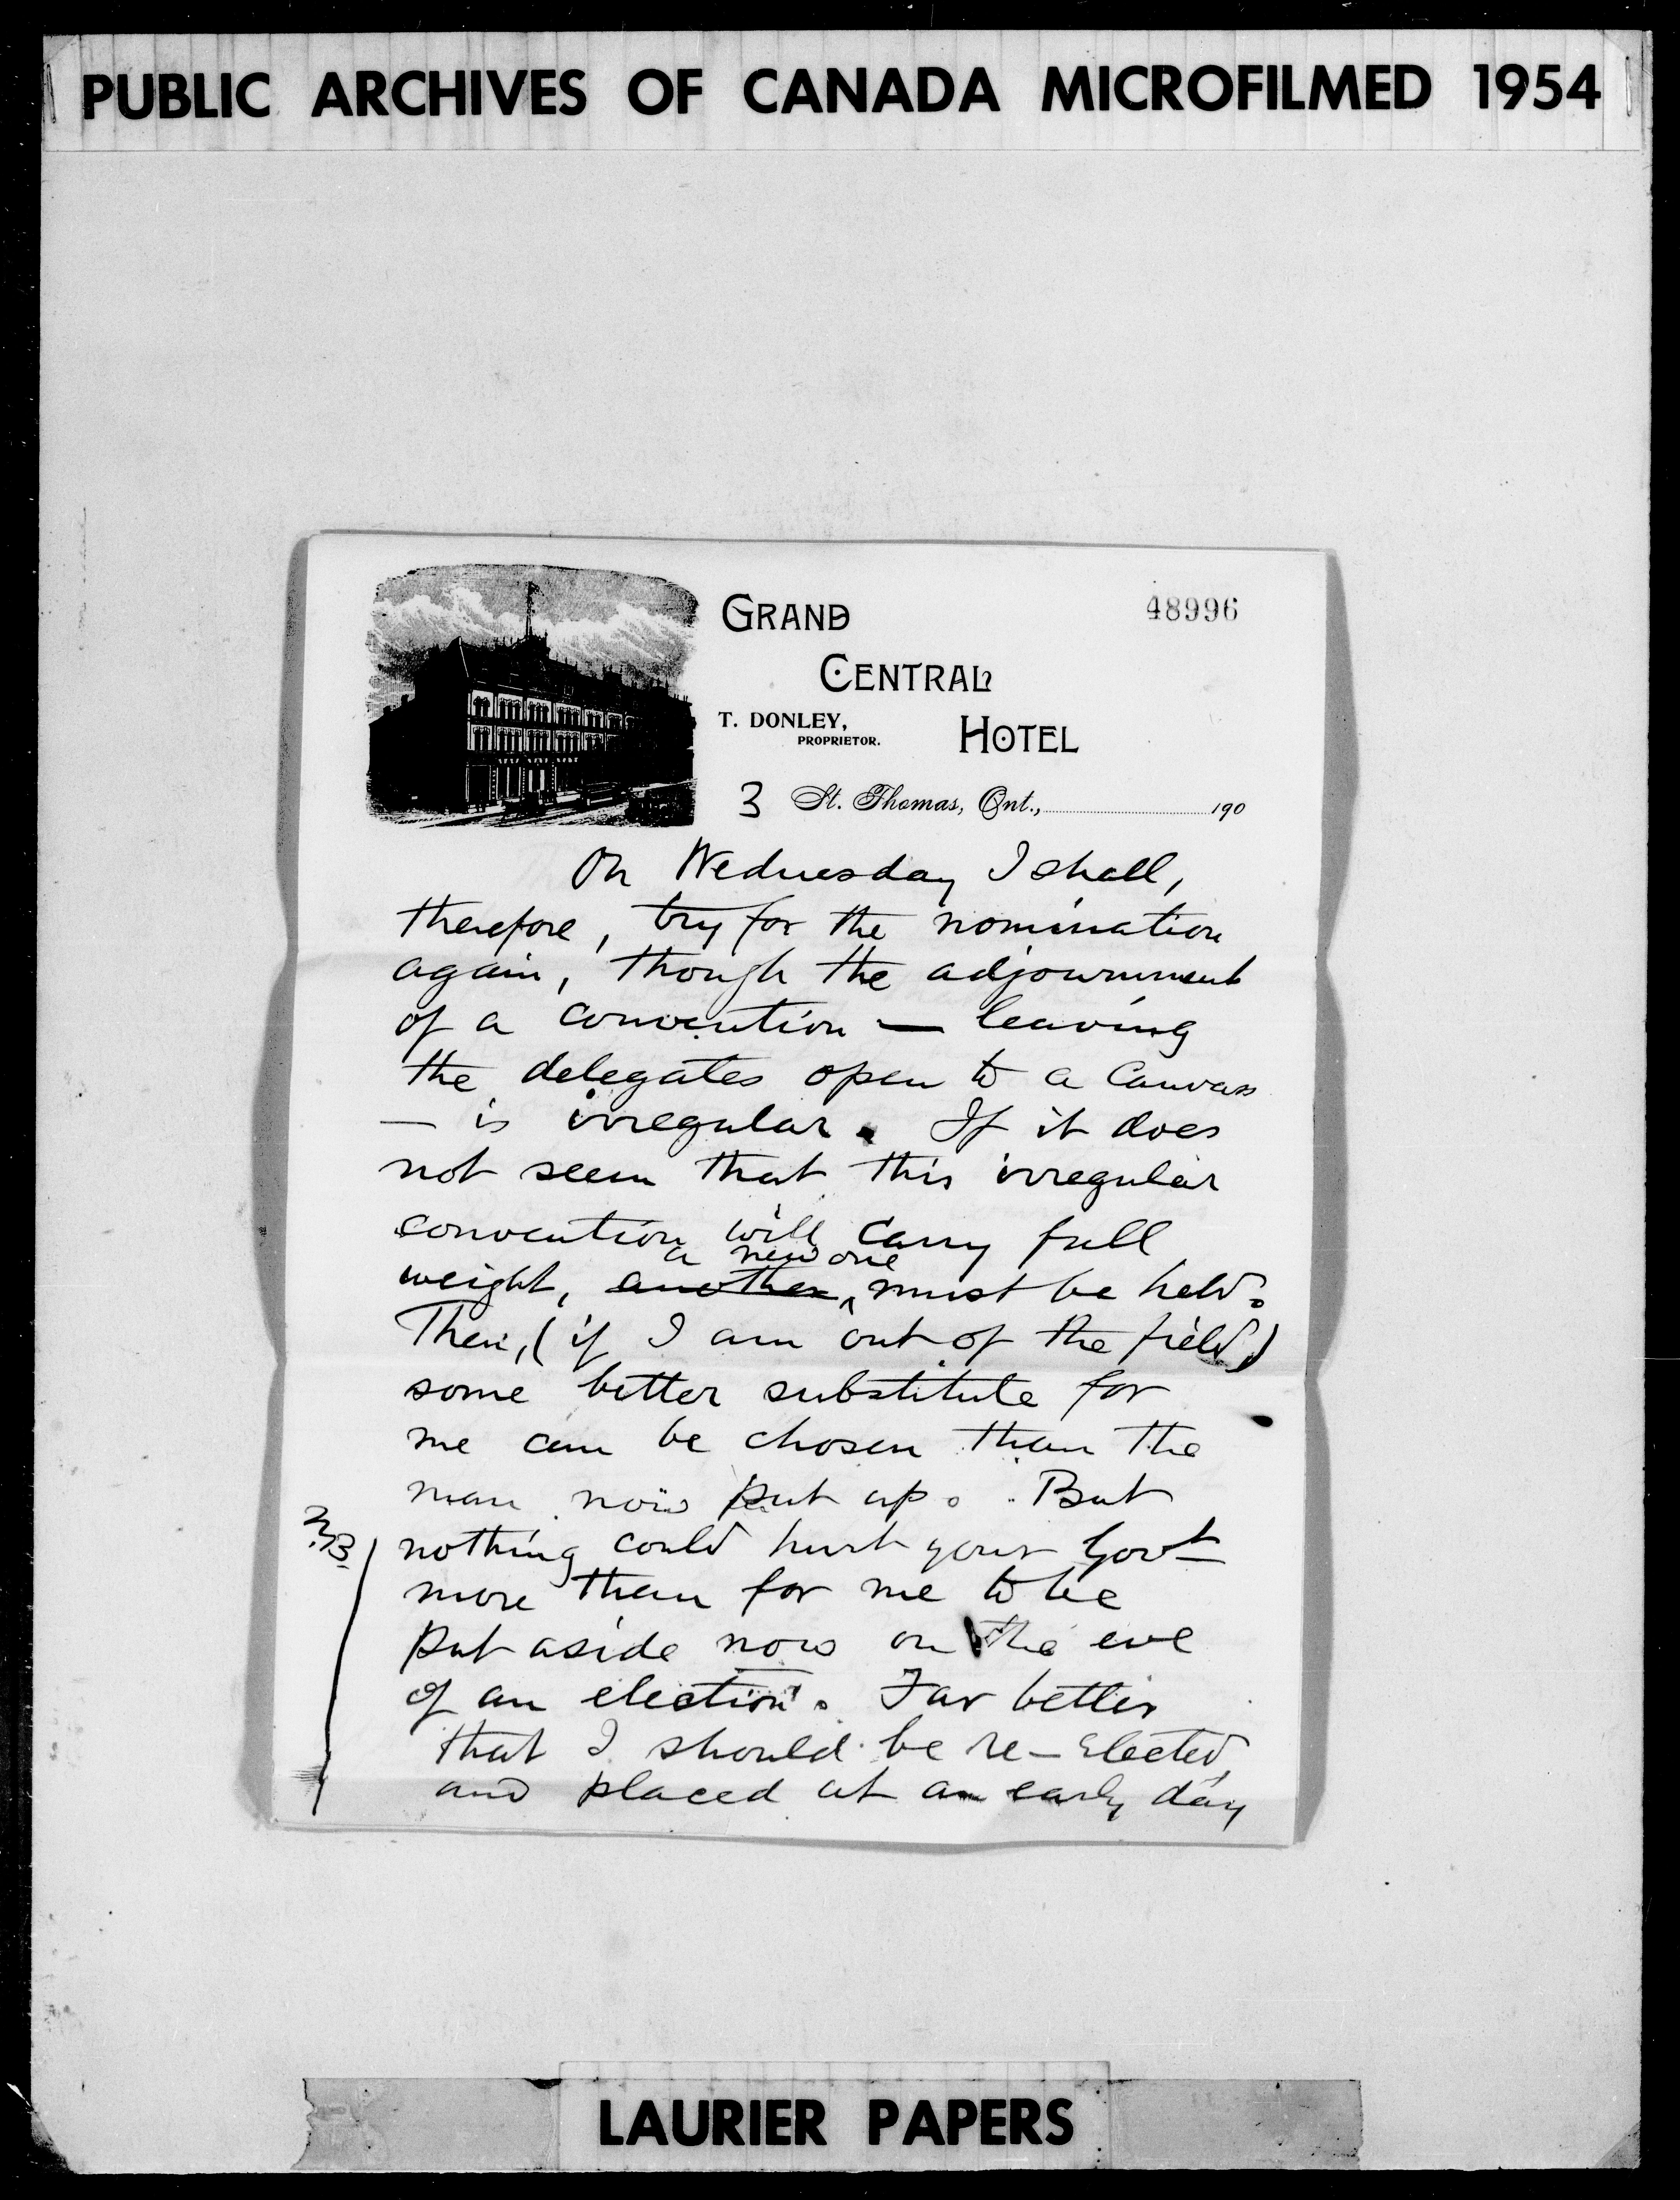 PUBLIC ARCHIVES OF CANADA MICROFILMED 1954
GRAND
48996
CENTRAL
T. DONLEY,
PROPRIETOR.
HOTEL
3 St. Thomas, Ont., 190
On Wednesday I shall,
therefore, try for the nomination
again, though the adjournment
of a convention — leaving
the delegates open to a canvass
— is irregular. If it does
not seem that this irregular
convention will carry full
a new one
weight, another must be held.
Then, (if I am out of the field)
some better substitute for
me can be chosen than the
man now put up. But
nothing could hurt your Govt
more than for me to be
put aside now on the eve
of an election. Far better
that I should be re-elected
and placed at an early day
LAURIER PAPERS